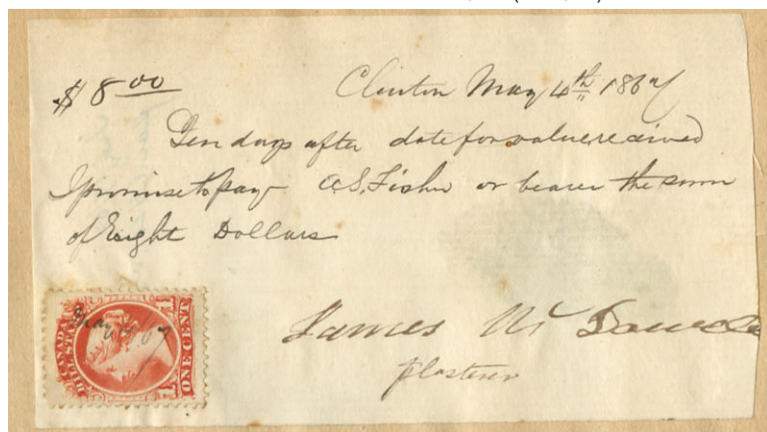 $ 8 00 Clinton May 4th 1867
Ten days after date for value received
I promise to pay A.S. Fisher or bearer the sum
of Eight Dollars
James Mc
plasterer
CANADA
BILL STAMP
ONE CENT
May 4 67